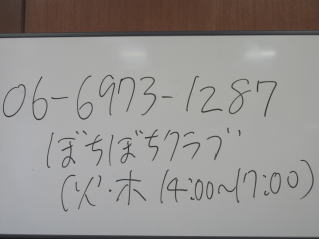 06-6973-1287
ぼちぼちクラブ
(火・木 14:00〜17:00)